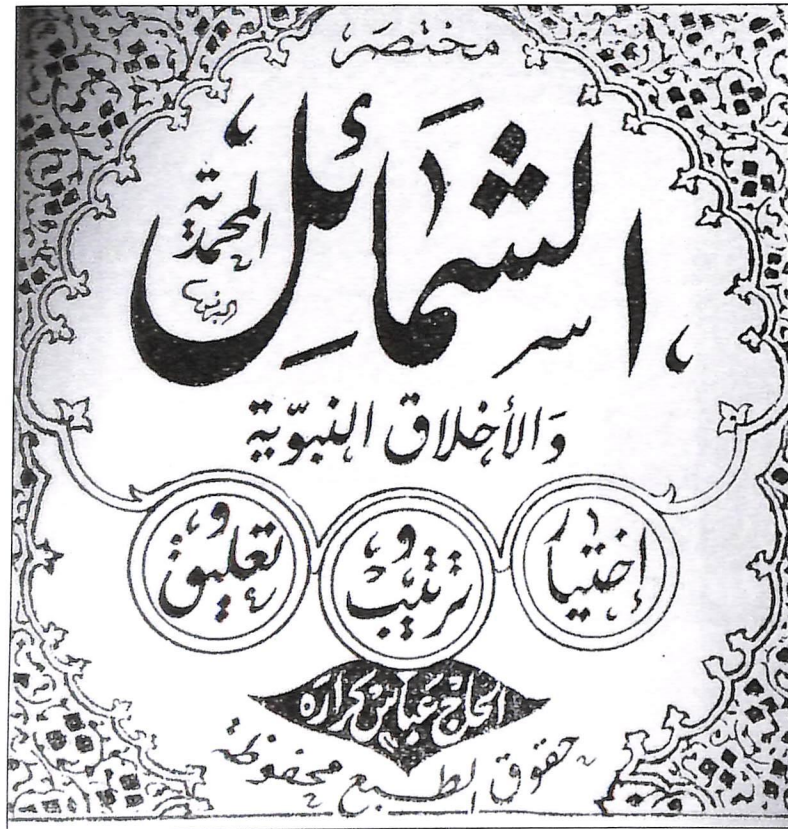 مختصر
الشمائل
المحمدية
والأخلاق النبوّية
إختيار وترتيب وتعليق
الحاج عباس كرارة
حقوق الطبع محفوظة